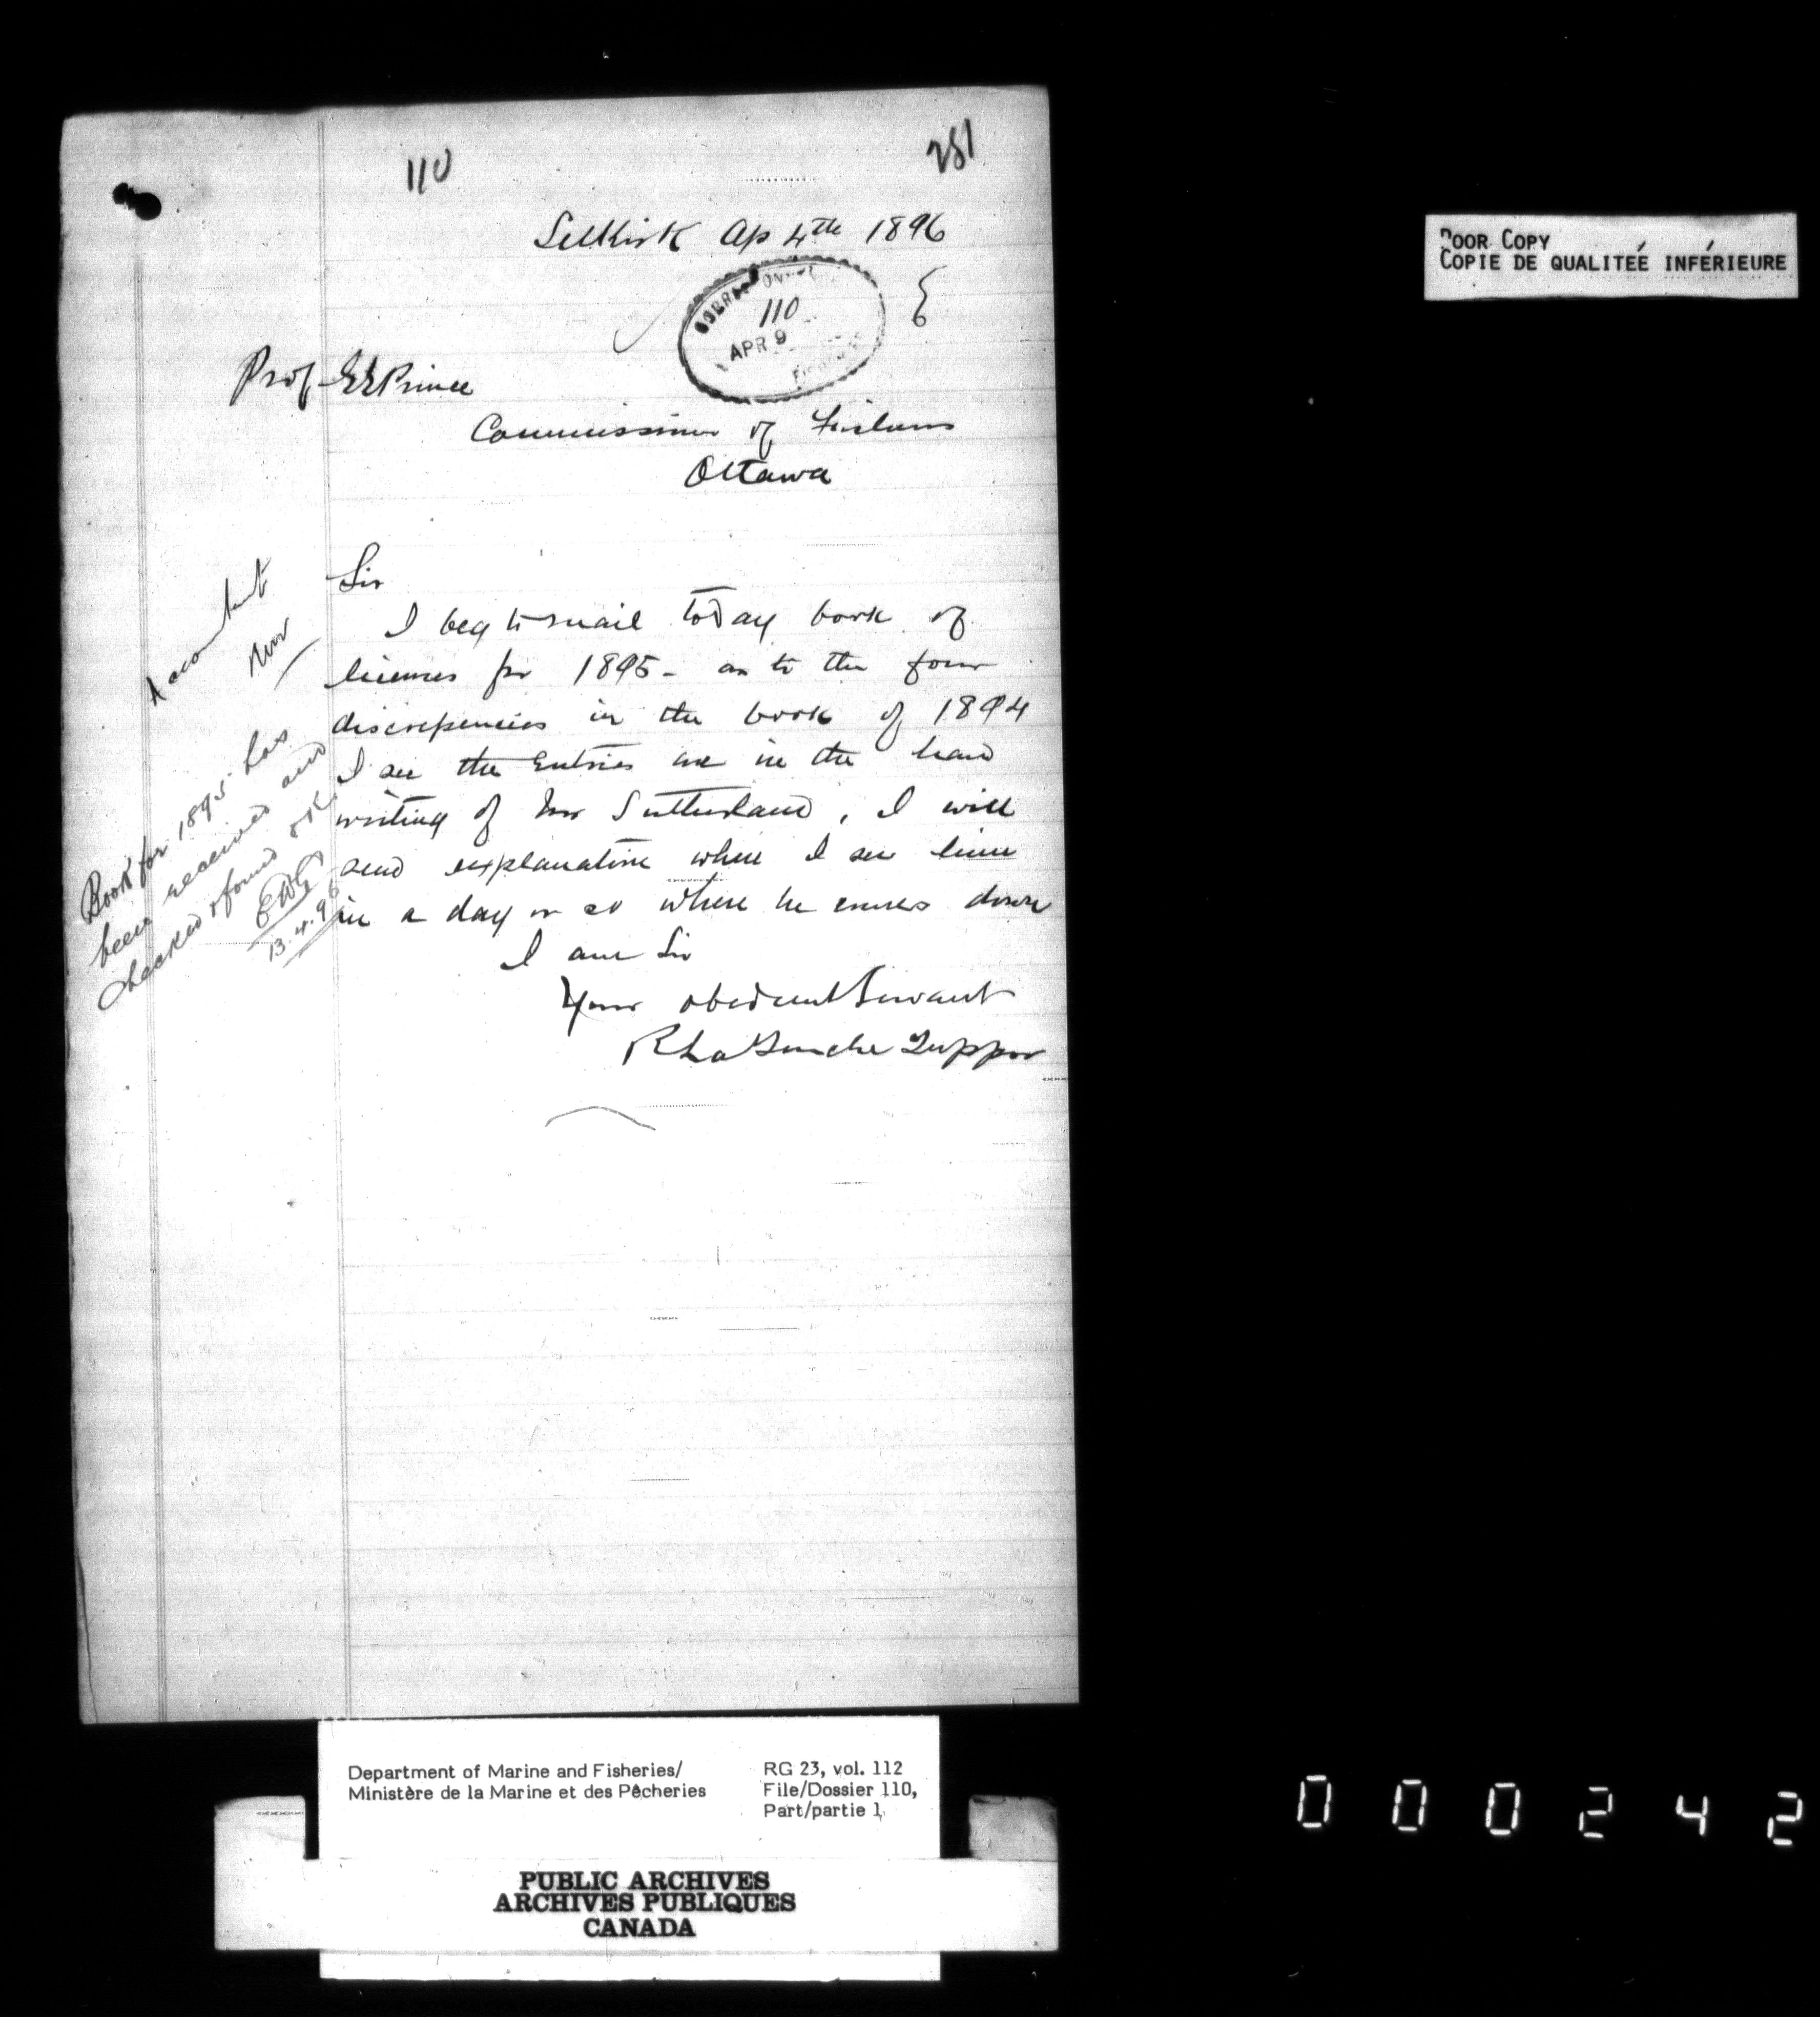 110
281
Selkirk Ap 4th 1896
110
APR 9
Prof EEPrince
Commissioner of Fisheries
Ottawa
Sir
I beg to mail today book of
licenses for 1895 - as to the four
discrepencies in the book of 1894
I see the Entries are in the hand
writing of Mr Sutherland, I will
send explanation when I see him
in a day or so when he comes down
I am Sir
Your obedient Servant
R LaTouche Tupper
Accountant
Book for 1895 has
been received and
checked & found O.K.
EWG
13.4.96
POOR COPY
COPIE DE QUALITEÉ INFÉRIEURE
Department of Marine and Fisheries/
Ministère de la Marine et des Pêcheries
RG 23, vol. 112
File/Dossier 110,
Part/partie 1
PUBLIC ARCHIVES
ARCHIVES PUBLIQUES
CANADA
000242